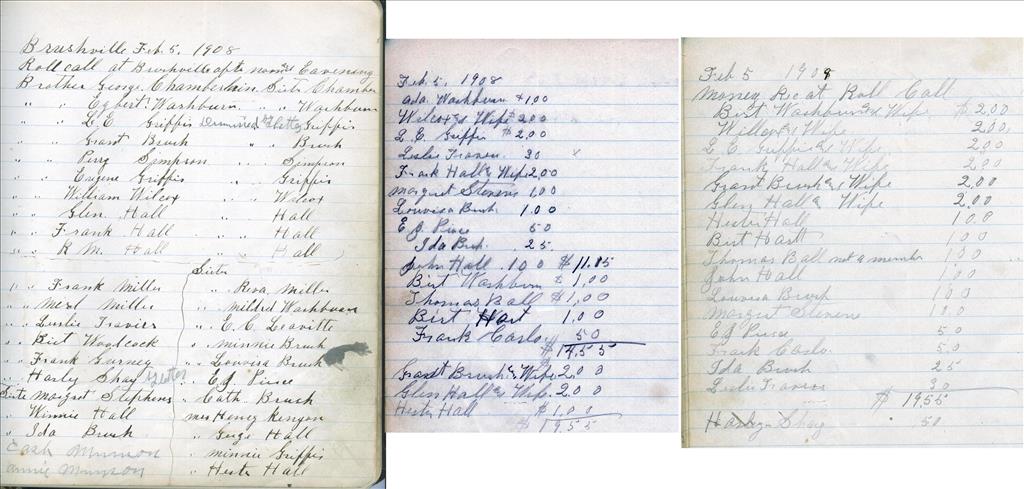 Brushville Feb. 5, 1908
Roll call at Brushville afternoon & Eavening
Brother George Chamberlain Sister Chamber
" " Egbert Washburn " " Washburn
" " L. E. Griffis Griffis
" " Grant Brush " " Brush
" " Perry Simpson " " Simpson
" " Eugene Griffis " " Griffis
" " William Wilcox " " Wilcox
" " Glen Hall " " Hall
" " Frank Hall " " Hall
" " R. M. Hall " " Hall
Sister
" " Frank Miller " Rosa Miller
" " Merl Miller " Mildred Washburn
" " Leslie Travis " C. C. Leavitte
" " Birt Woodcock " Minnie Brush
" " Frank Gurney " Louvisa Brush
" " Harley Shay " E. J. Pierce
Sister Margret Stephens " Cath Brush
" Winnie Hall Mrs Henry Kenyon
" Ida Brush " Hall
Munson " Minnie Griffis
Annie Munson " Hester Hall
Feb. 5, 1908
Ada Washburn $1.00
Wilcox & Wife $2.00
L. E. Griffis $2.00
Leslie Traver 30
Frank Hall & Wife 2.00
Margret Stevens 1.00
Louvisa Brush 1.00
E. J. Pierce 50
Ida Brush 25
John Hall 1.00 $11.05
Birt Washburn $1.00
Thomas Ball $1.00
Birt Hart 1.00
Frank Caslo 50
$14.55
Grant Brush & Wife 2.00
Glen Hall & Wife 2.00
Hester Hall $1.00
$19.55
Feb 5 1908
Money Rec at Roll Call
Birt Washburn & Wife $2.00
Wilcox & Wife 2.00
L. E. Griffis & Wife 2.00
Frank Hall & Wife 2.00
Grant Brush & Wife 2.00
Glen Hall & Wife 2.00
Hester Hall 1.00
Birt Hartt 1.00
Thomas Ball not a member 1.00
John Hall 1.00
Louvisa Brush 1.00
Margret Stevens 1.00
E J Pierce 50
Frank Caslo 50
Ida Brush 25
Leslie Travers 30
$19.55
Harley Shay 50